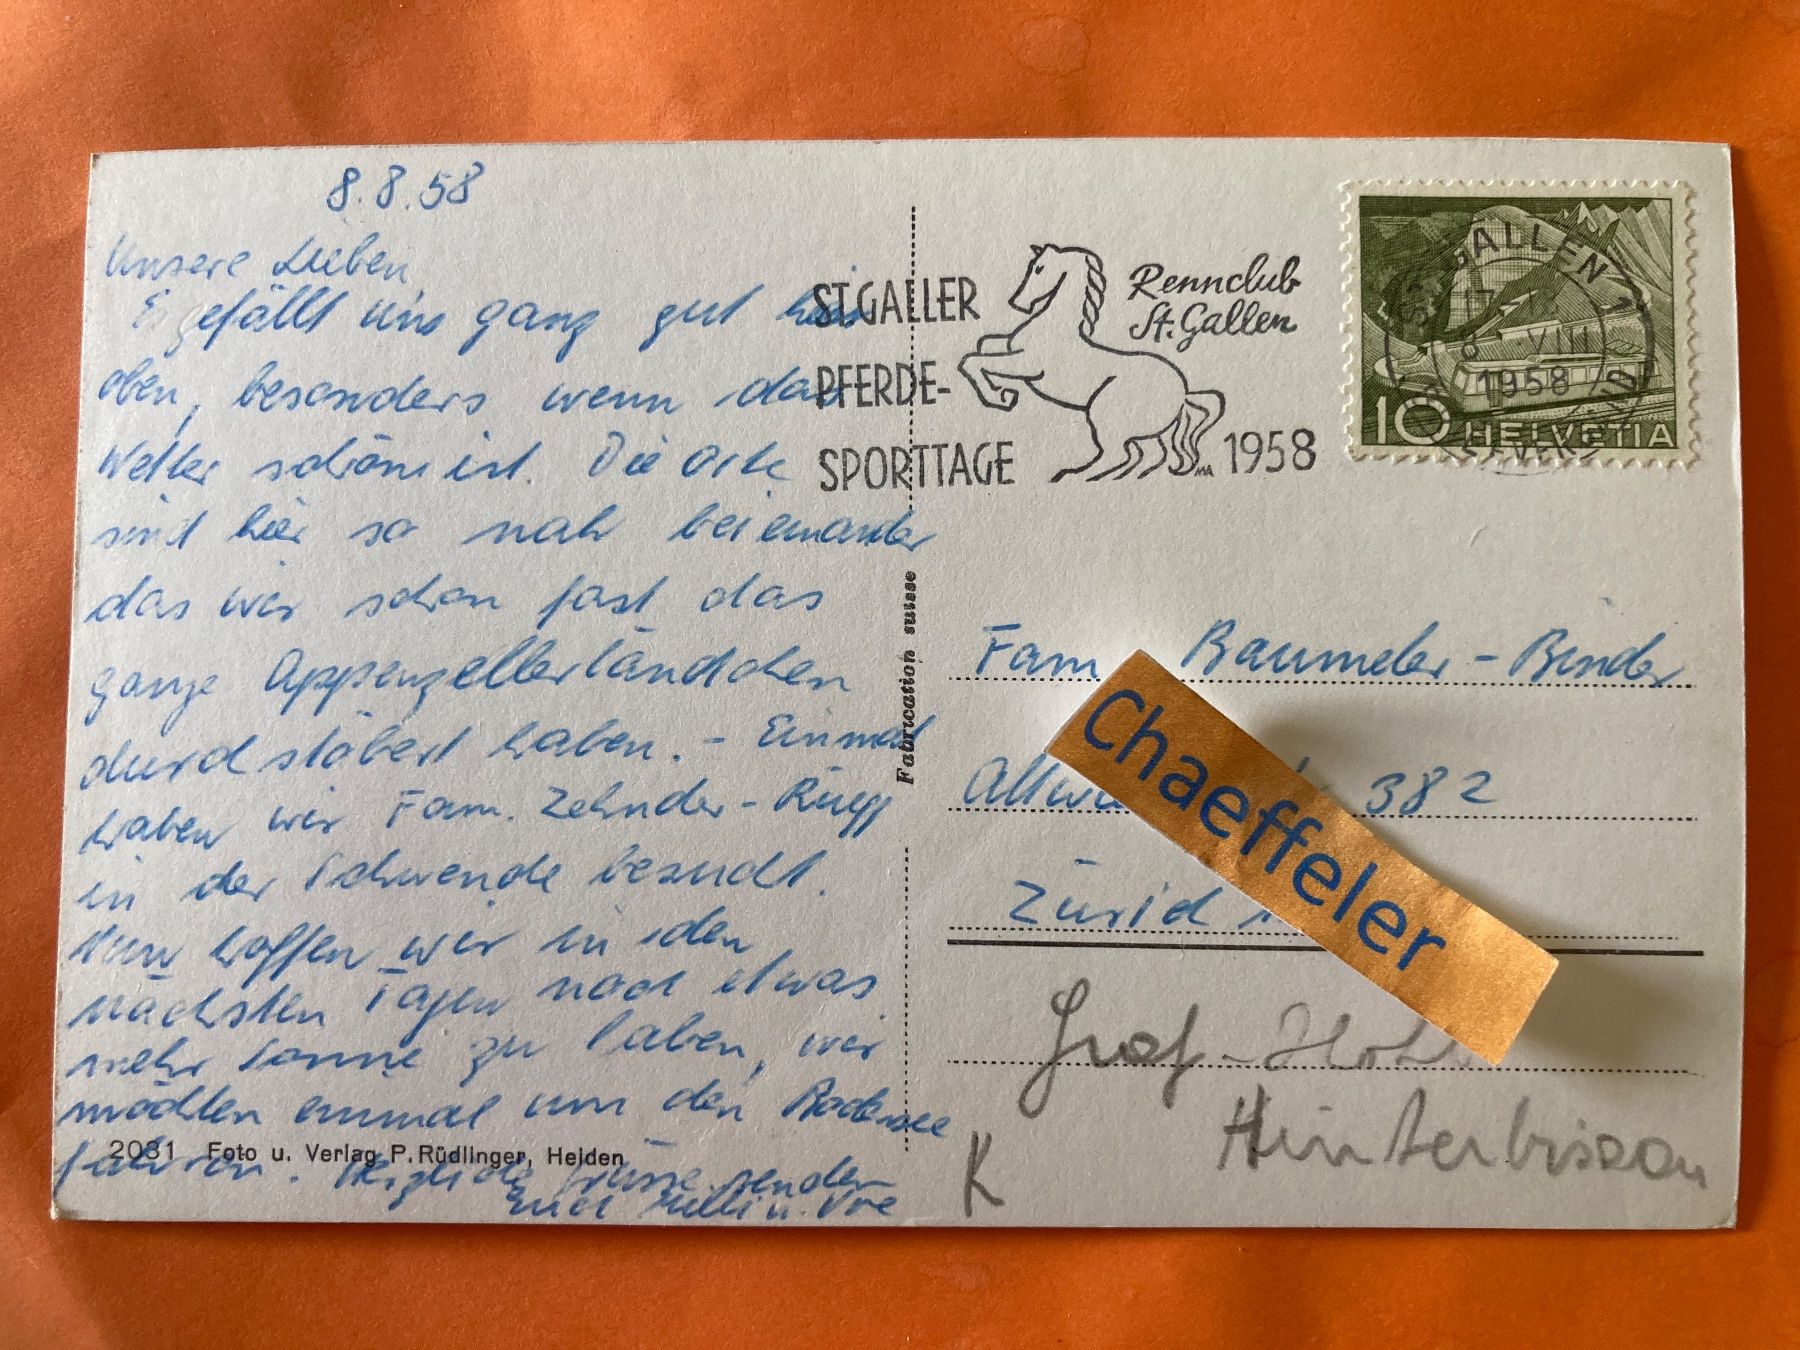 8.8.58
Unsere Lieben,
Es gefällt uns ganz gut hier
oben, besonders wenn das
Wetter schön ist. Die Orte
sind hier so nah beieinander
das wir schon fast das
ganze Appenzellerländchen
durchstöbert haben. - Einmal
haben wir Fam. Zehnder - Rüegg
in der Schwende besucht.
Nun hoffen wir in den
nächsten Tagen noch etwas
mehr Sonne zu haben, wir
möchten einmal um den Bodensee
fahren. Herzliche Grüsse senden
Euch u.
2031 Foto u. Verlag P. Rüdlinger, Heiden
Fabrication suisse
ST.GALLER
PFERDE-
SPORTTAGE
Rennclub
St. Gallen
1958
ST. GALLEN 1
8. VIII
1958
BRIEFVERSAND
10 HELVETIA
Fam. Baumeler - Binder
382
Zürich
Chaeffeler
Graf -
K